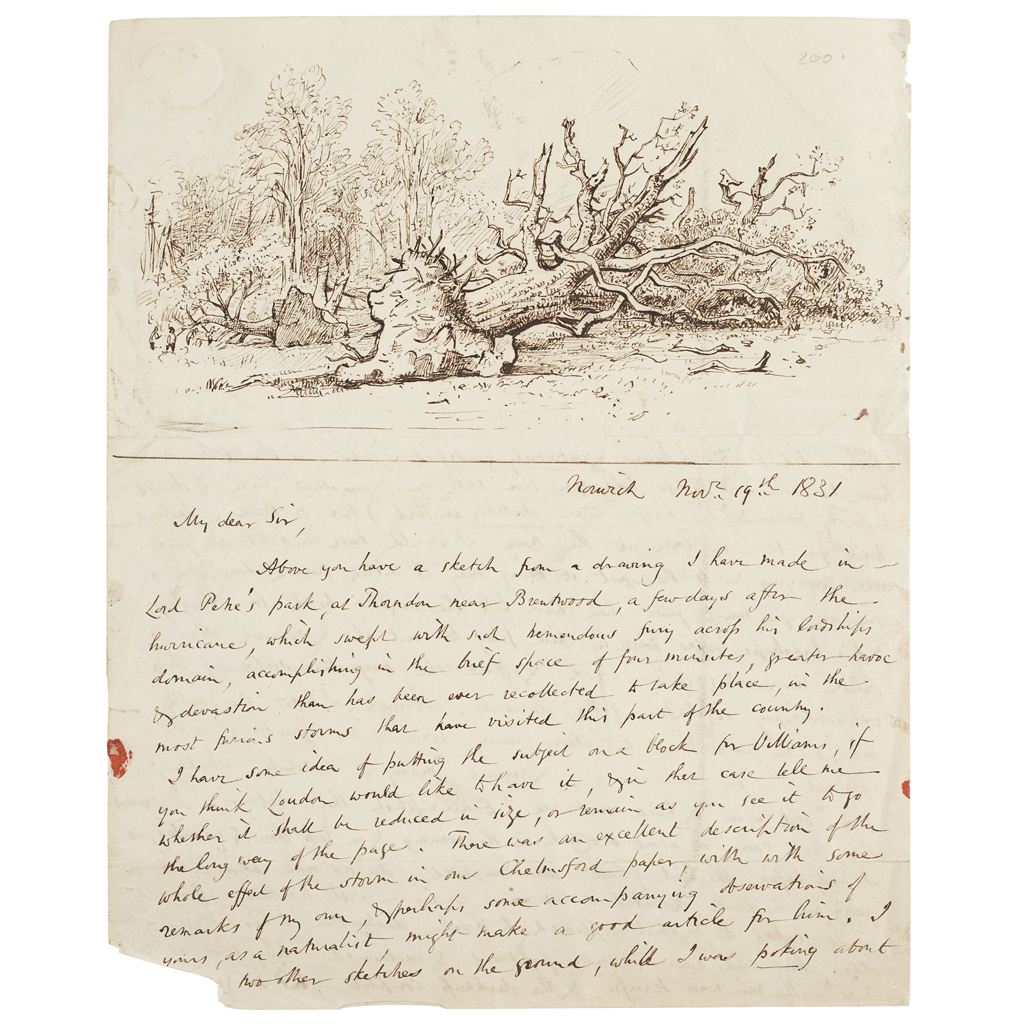 200.
Norwich Novr. 19th 1831
My dear Sir,
Above you have a sketch from a drawing I have made in
Lord Petre's park, at Thorndon near Brentwood, a few days after the
hurricane, which swept with such tremendous fury across his lordships
domain, accomplishing in the brief space of four minutes, greater havoc
& devastion than has been ever recollected to take place, in the
most furious storms that have visited this part of the country.
I have some idea of putting the subject on a block for Williams, if
you think Loudon would like to have it, & in that case tell me
whether it shall be reduced in size, or remain as you see it to go
the long way of the page. There was an excellent description of the
whole effect of the storm in our Chelmsford paper, with with some
remarks of my own, & perhaps some accompanying observations of
yours, as a naturalist, might make a good article for him. I
two other sketches on the ground, whilst I was poking about